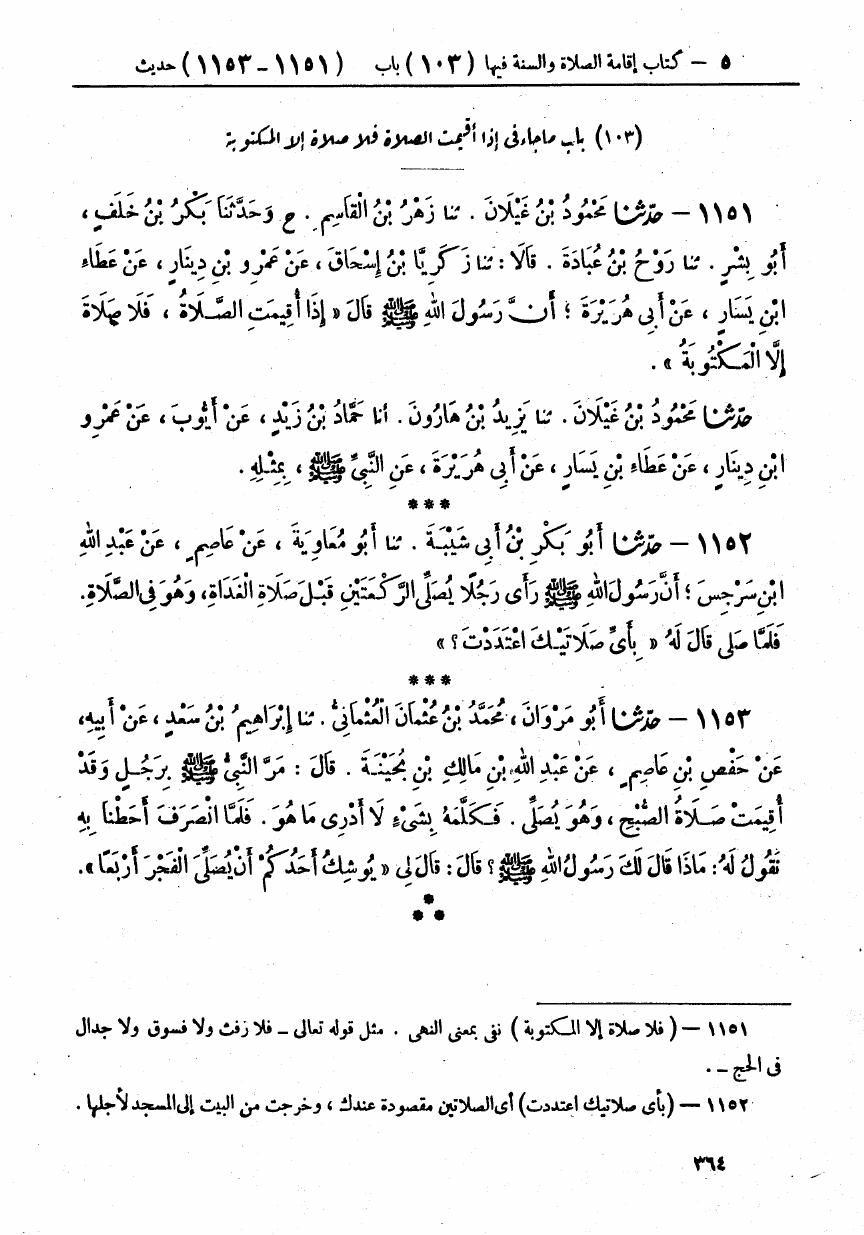 ٥ – كتاب إقامة الصلاة والسنة فيها (١٠٣) باب (١١٥١ – ١١٥٣) حديث
(١٠٣) باب ما جاء في إذا أقيمت الصلاة فلا صلاة إلا المكتوبة
١١٥١ – حَدَّثَنَا مَحْمُودُ بْنُ غَيْلَانَ . ثنا زَهْرُ بْنُ الْقَاسِمِ . ح وَحَدَّثَنَا بَكْرُ بْنُ خَلَفٍ ،
أَبُو بِشْرٍ . ثنا رَوْحُ بْنُ عُبَادَةَ . قَالَا : ثنا زَكَرِيَّا بْنُ إِسْحَاقَ ، عَنْ عَمْرِو بْنِ دِينَارٍ ، عَنْ عَطَاءِ
ابْنِ يَسَارٍ ، عَنْ أَبِي هُرَيْرَةَ ؛ أَنَّ رَسُولَ اللهِ ﷺ قَالَ « إِذَا أُقِيمَتِ الصَّلَاةُ ، فَلَا صَلَاةَ
إِلَّا الْمَكْتُوبَةُ » .
حَدَّثَنَا مَحْمُودُ بْنُ غَيْلَانَ . ثنا يَزِيدُ بْنُ هَارُونَ . أنا حَمَّادُ بْنُ زَيْدٍ ، عَنْ أَيُّوبَ ، عَنْ عَمْرِو
ابْنِ دِينَارٍ ، عَنْ عَطَاءِ بْنِ يَسَارٍ ، عَنْ أَبِي هُرَيْرَةَ ، عَنِ النَّبِيِّ ﷺ ، بِمِثْلِهِ .
***
١١٥٢ – حَدَّثَنَا أَبُو بَكْرِ بْنُ أَبِي شَيْبَةَ . ثنا أَبُو مُعَاوِيَةَ ، عَنْ عَاصِمٍ ، عَنْ عَبْدِ اللهِ
ابْنِ سَرْجِسَ ؛ أَنَّ رَسُولَ اللهِ ﷺ رَأَى رَجُلًا يُصَلِّي الرَّكْعَتَيْنِ قَبْلَ صَلَاةِ الْغَدَاةِ ، وَهُوَ فِي الصَّلَاةِ .
فَلَمَّا صَلَّى قَالَ لَهُ « بِأَيِّ صَلَاتَيْكَ اعْتَدَدْتَ ؟ »
***
١١٥٣ – حَدَّثَنَا أَبُو مَرْوَانَ ، مُحَمَّدُ بْنُ عُثْمَانَ الْعُثْمَانِيُّ . ثنا إِبْرَاهِيمُ بْنُ سَعْدٍ ، عَنْ أَبِيهِ ،
عَنْ حَفْصِ بْنِ عَاصِمٍ ، عَنْ عَبْدِ اللهِ بْنِ مَالِكِ بْنِ بُحَيْنَةَ . قَالَ : مَرَّ النَّبِيُّ ﷺ بِرَجُلٍ وَقَدْ
أُقِيمَتْ صَلَاةُ الصُّبْحِ ، وَهُوَ يُصَلِّي . فَكَلَّمَهُ بِشَيْءٍ لَا أَدْرِي مَا هُوَ . فَلَمَّا انْصَرَفَ أَحَطْنَا بِهِ
نَقُولُ لَهُ : مَاذَا قَالَ لَكَ رَسُولُ اللهِ ﷺ ؟ قَالَ : قَالَ لِي « يُوشِكُ أَحَدُكُمْ أَنْ يُصَلِّيَ الْفَجْرَ أَرْبَعًا » .
***
١١٥١ – ( فلا صلاة إلا المكتوبة ) نفي بمعنى النهي . مثل قوله تعالى – فلا رفث ولا فسوق ولا جدال
في الحج – .
١١٥٢ – (بأي صلاتيك اعتددت) أي الصلاتين مقصودة عندك ، وخرجت من البيت إلى المسجد لأجلها .
٣٦٤